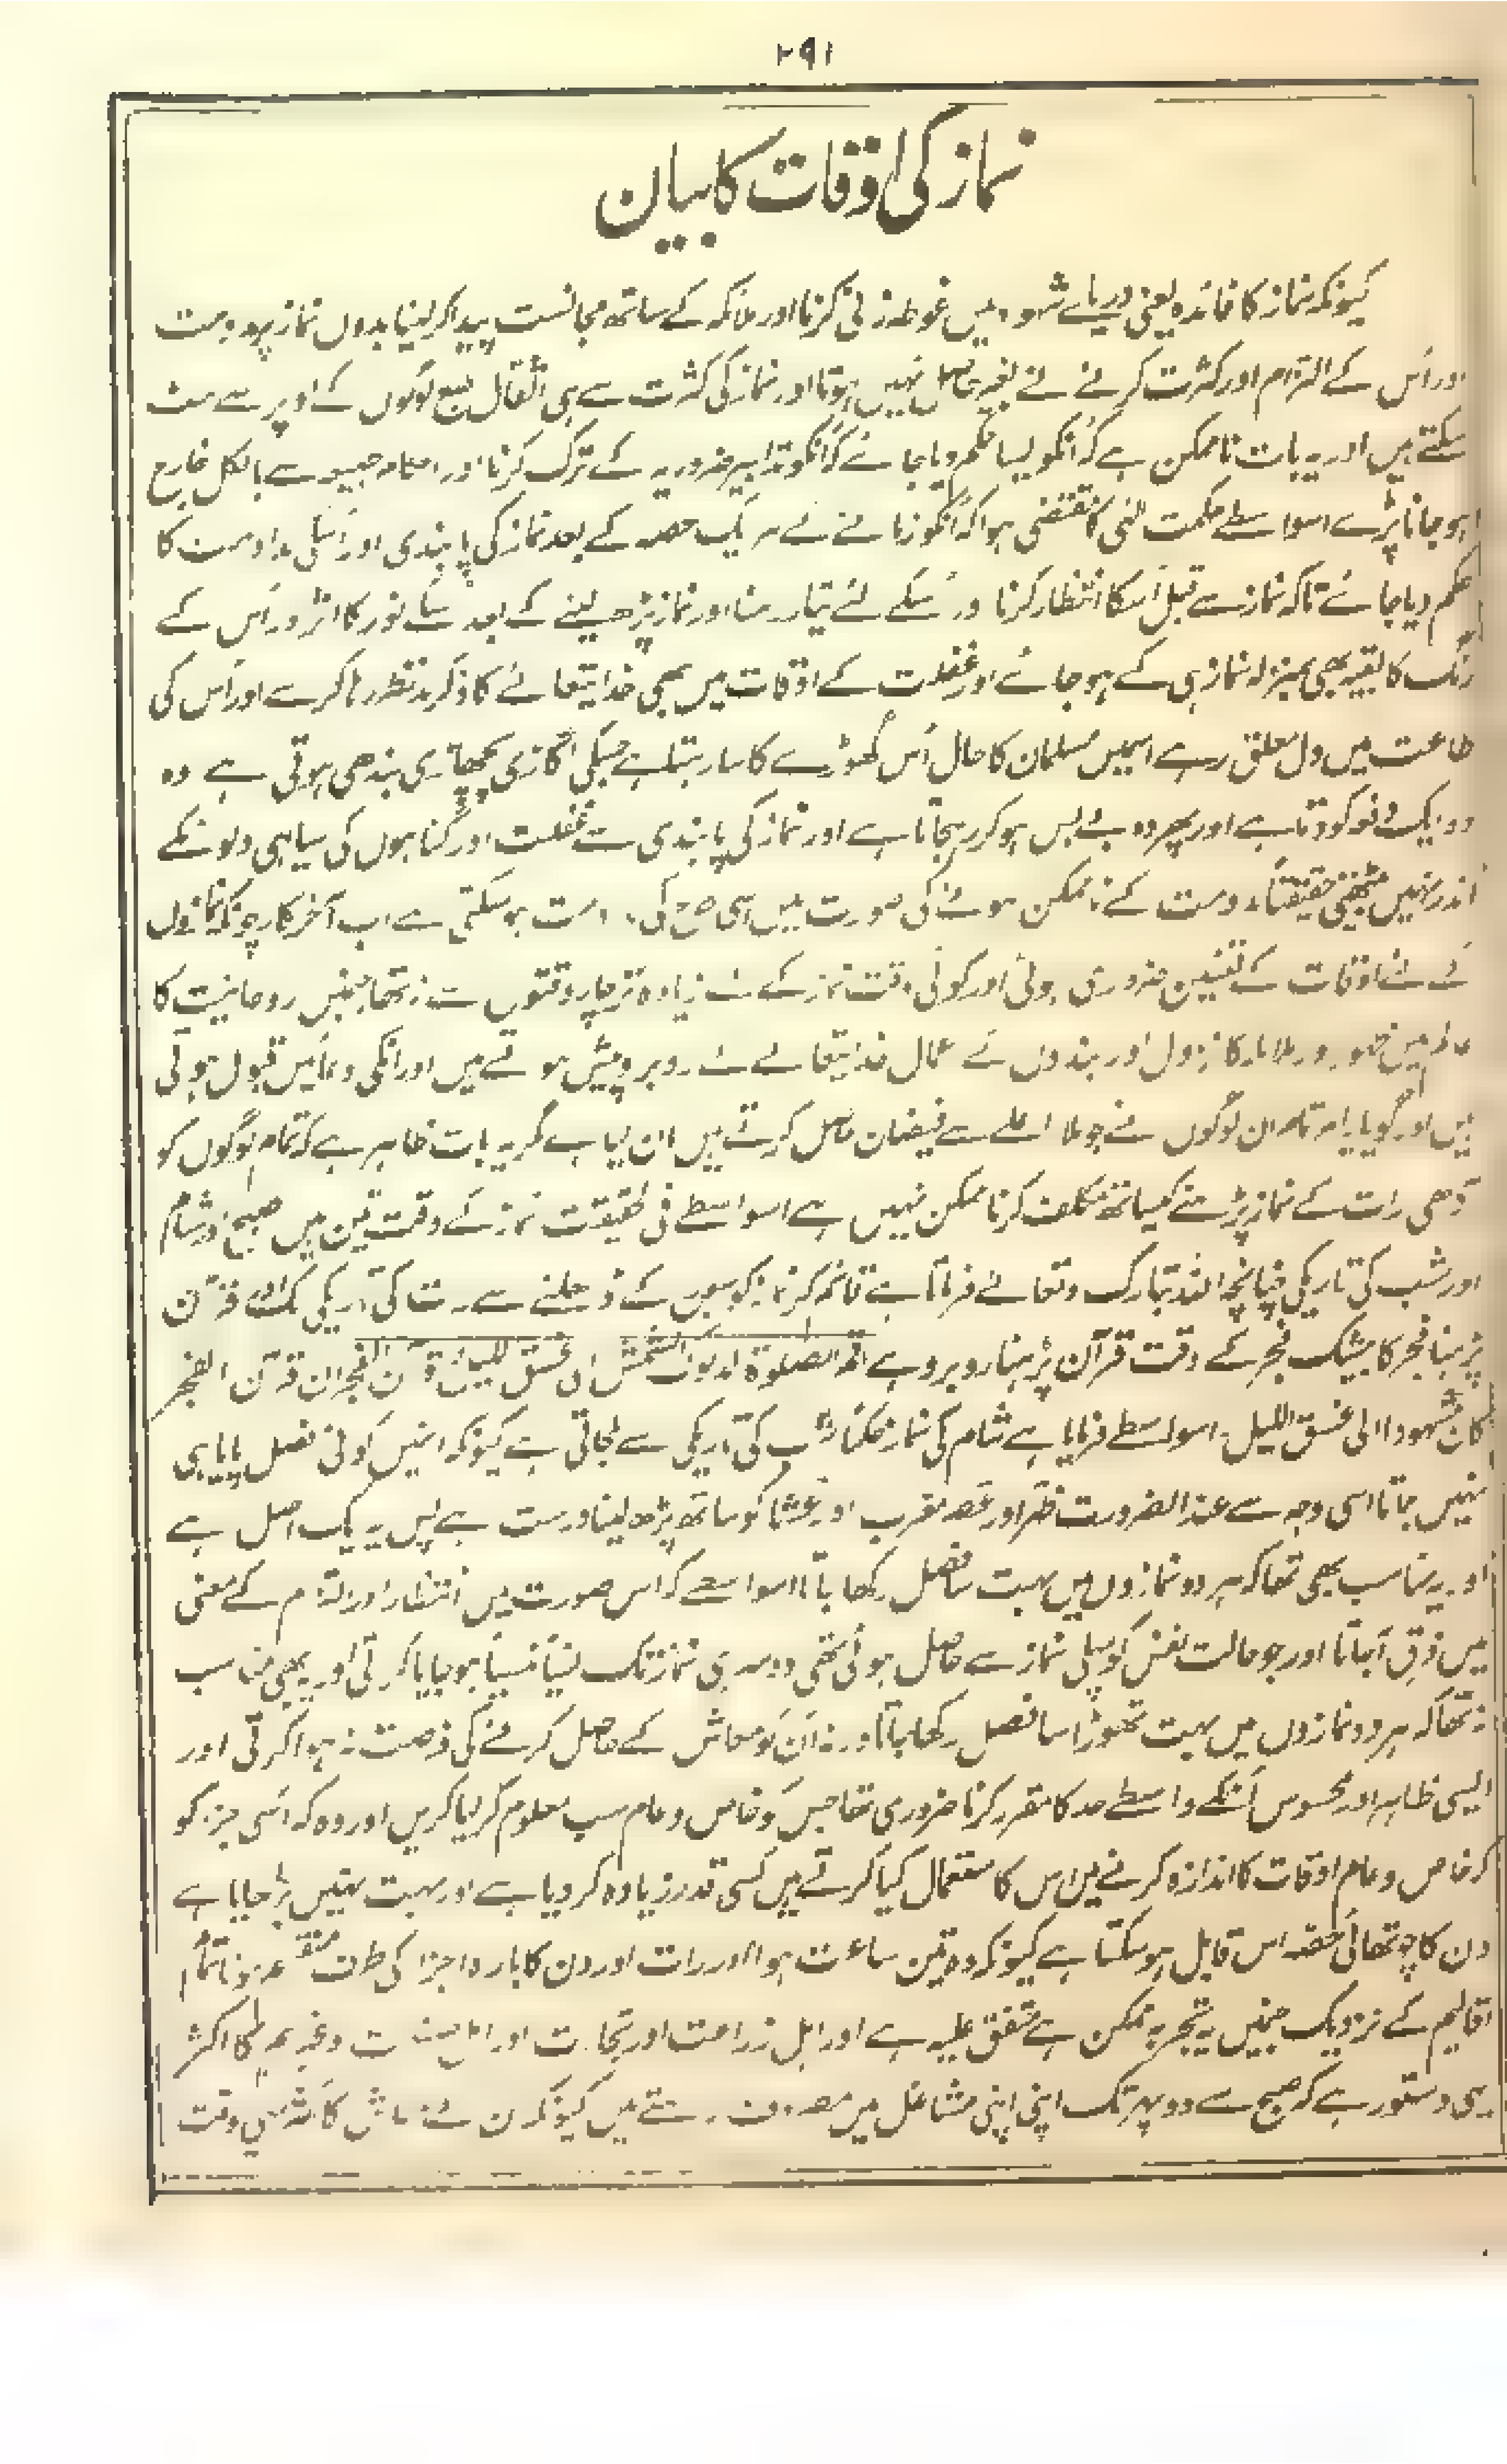 ۲۹۱
نماز کی اوقات کا بیان
کیونکہ نماز کا فائدہ یعنی دریائے شہود میں غوطہ زنی کرنا اور ملائکہ کے ساتھ مجانست پیدا کر لینا بدوں نماز پر مداومت
اور اُس کے التزام اور کثرت کرنے کے بغیر حاصل نہیں ہوتا اور نماز کی کثرت سے ہی اثقال طبع لوگوں کے اوپر سے ہٹ
سکتے ہیں اور یہ بات ناممکن ہے کہ اُنکو ایسا حکم دیا جائے کہ اُنکو تدابیر ضروریہ کے ترک کرنا اور احکام طبیعیہ سے بالکل خارج
ہو جانا پڑے اسواسطے حکمت الٰہی کا مقتضی ہوا کہ اُنکو زمانے کے ہر یک حصہ کے بعد نماز کی پابندی اور اُسکی مداومت کا
حکم دیا جائے تاکہ نماز سے قبل اُسکا انتظار کرنا اور اُسکے لئے تیار رہنا اور نماز پڑھ لینے کے بعد اُسکے نور کا اثر اور اُس کے
رنگ کا بقیہ بھی بمنزلہ نماز ہی کے ہو جائے اور غفلت کے اوقات میں بھی خدایتعالےٰ کا ذکر مدنظر رہا کرے اور اُس کی
طاعت میں دل معلق رہے اسمیں مسلمان کا حال اُس گھوڑے کا سا رہتا ہے جسکی اگاڑی پچھاڑی بندھی ہوتی ہے وہ
دو ایک دفعہ کودتا ہے اور پھر وہ بے بس ہو کر رہجاتا ہے اور نماز کی پابندی سے غفلت اور گناہوں کی سیاہی دلونکے
اندر نہیں بیٹھتی حقیقتاً مداومت کے ناممکن ہونے کی صورت میں اسی طرح کی مداومت ہوسکتی ہے اب آخرکار چونکہ نمازوں
کے لئے اوقات کے تعیین ضروری ہوئی اور کوئی وقت نماز کے لئے زیادہ تر چار وقتوں سے نہ تھا جنمیں روحانیت کا
عالم میں ظہور اور ملائکہ کا نزول اور بندوں کے اعمال خدایتعالےٰ کے روبرو پیش ہوتے ہیں اور انکی دعائیں قبول ہوتی
ہیں اور گویا یہ امر تمام ان لوگوں نے جو ملا اعلےٰ سے فیضان حاصل کرتے ہیں مان لیا ہے مگر یہ بات ظاہر ہے کہ تمام لوگوں کو
آدھی رات کے نماز پڑھنے کیساتھ مکلف کرنا ممکن نہیں ہے اسواسطے فی الحقیقت نماز کے وقت تین ہیں صبح اور شام
اور شب کی تاریکی چنانچہ اللہ تبارک وتعالےٰ فرماتا ہے قائم کر نماز کو سورج کے ڈھلنے سے رات کی تاریکی تک اور قرآن
پڑہنا فجر کا بیشک فجر کے وقت قرآن پڑہنا روبرو ہے اقم الصلوٰۃ لدلوک الشمس الی غسق اللیل وقرآن الفجر ان قرآن الفجر
کان مشہودا الی غسق اللیل۔ اسواسطے فرمایا ہے شام کی نماز حکماً شب کی تاریکی سے ملجاتی ہے کیونکہ انمیں کوئی فصل پایا ہی
نہیں جاتا اسی وجہ سے عند الضرورت ظہر اور عصر مغرب اور عشا کو ساتھ پڑھ لینا درست ہے پس یہ یک اصل ہے
اور یہ مناسب بھی تھا کہ ہر دو نمازوں میں بہت سا فصل رکھا جاتا اسواسطے کہ اس صورت میں انتظار اور التزام کے معنی
میں فرق آجاتا اور جو حالت نفس کو پہلی نماز سے حاصل ہوئی تھی دوسری نماز تک نسیاً منسیاً ہو جایا کرتی اور یہ بھی مناسب
نہ تھا کہ ہر دو نمازوں میں بہت تھوڑا سا فصل رکھا جاتا ورنہ اُن کو معاش کے حاصل کرنے کی فرصت نہ ہوا کرتی اور
ایسی ظاہر اور محسوس اُنکے واسطے حد کا مقرر کرنا ضروری تھا جس کو خاص و عام سب معلوم کر لیا کریں اور وہ کہ اُسی جزء کو
کہ خاص و عام اوقات کا اندازہ کرنے میں اس کا استعمال کیا کرتے ہیں کسی قدر زیادہ کر دیا ہے اور بہت نہیں بڑہایا ہے
دن کا چوتھائی حصہ اس قابل ہوسکتا ہے کیونکہ وہ تین ساعت ہوا اور رات اور دن کا بارہ اجزا کی طرف منقسم ہونا تمام
اقالیم کے نزدیک جنمیں یہ تجربہ ممکن ہے متفق علیہ ہے اور اہل زراعت اور تجارت اور اہل صنعت وغیرہم کا اکثر
یہی دستور ہے کہ صبح سے دوپہر تک اپنی اپنی مشاغل میں مصروف رہتے ہیں کیونکہ